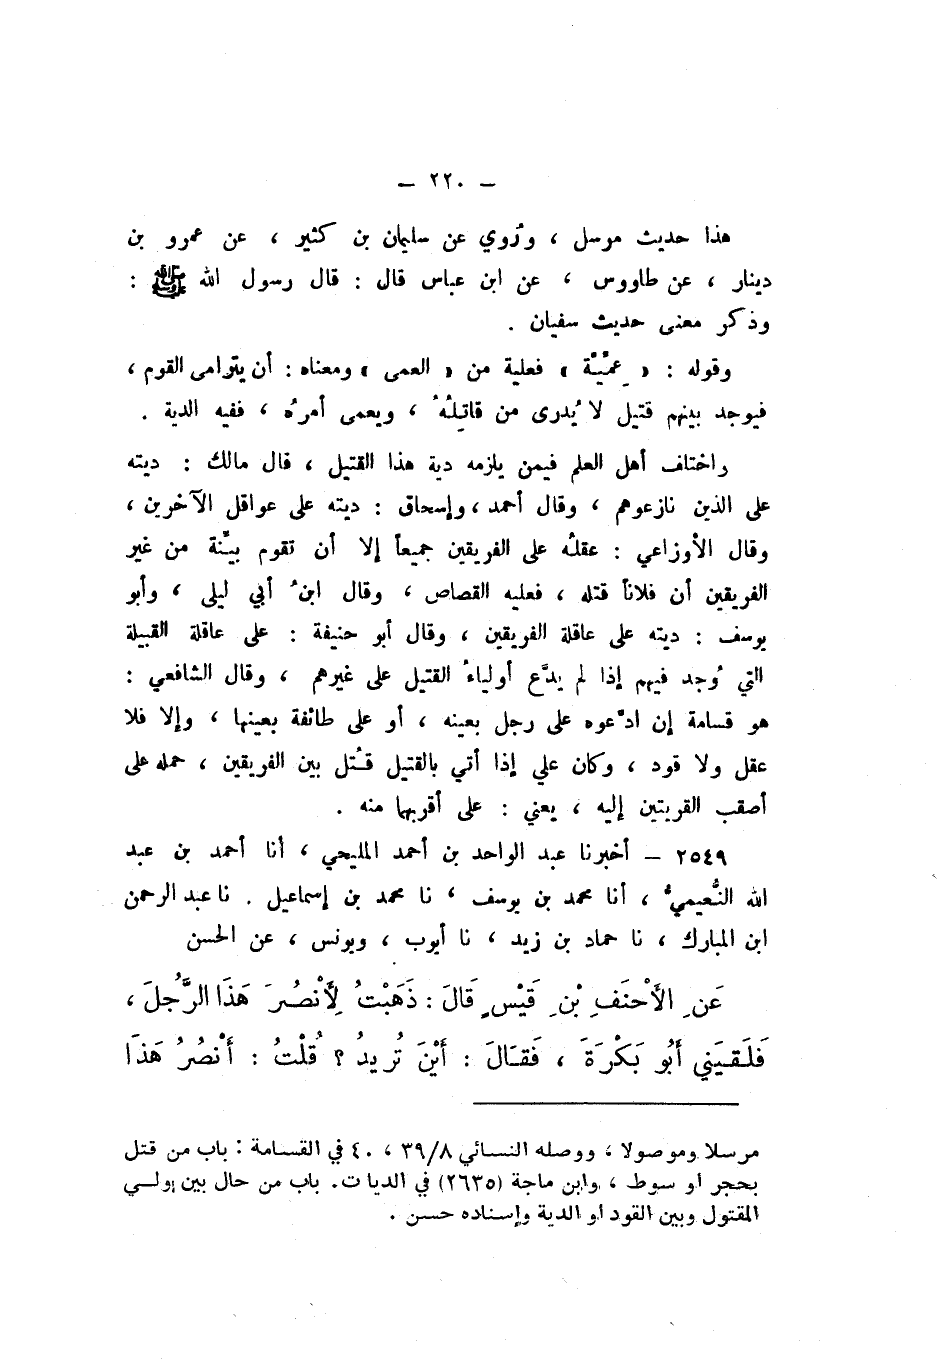 — ٢٢٠ —
هذا حديث مرسل ، ورُوي عن سليمان بن كثير ، عن عمرو بن
دينار ، عن طاووس ، عن ابن عباس قال : قال رسول الله ﷺ :
وذكر معنى حديث سفيان .
وقوله : « عِمِّيَّة » فعلية من « العمى » ومعناه : أن يترامى القوم ،
فيوجد بينهم قتيل لا يُدرى من قاتِلُهُ ، ويعمى أمرُه ، ففيه الدية .
واختلف أهل العلم فيمن يلزمه دية هذا القتيل ، قال مالك : ديته
على الذين نازعوهم ، وقال أحمد ، وإسحاق : ديته على عواقل الآخرين ،
وقال الأوزاعي : عقلُه على الفريقين جميعاً إلا أن تقوم بيِّنة من غير
الفريقين أن فلاناً قتله ، فعليه القصاص ، وقال ابنُ أبي ليلى ، وأبو
يوسف : ديته على عاقلة الفريقين ، وقال أبو حنيفة : على عاقلة القبيلة
التي وُجد فيهم إذا لم يدَّع أولياءُ القتيل على غيرهم ، وقال الشافعي :
هو قسامة إن ادَّعوه على رجل بعينه ، أو على طائفة بعينها ، وإلا فلا
عقل ولا قود ، وكان علي إذا أتي بالقتيل قُتل بين الفريقين ، حمله على
أصقب القريتين إليه ، يعني : على أقربهما منه .
٢٥٤٩ – أخبرنا عبد الواحد بن أحمد المليحي ، أنا أحمد بن عبد
الله النُّعيميُّ ، أنا محمد بن يوسف ، نا محمد بن إسماعيل . نا عبد الرحمن
ابن المبارك ، نا حماد بن زيد ، نا أيوب ، ويونس ، عن الحسن
عَنِ الأَحْنَفِ بْنِ قَيْسٍ قَالَ : ذَهَبْتُ لِأَنْصُرَ هَذَا الرَّجُلَ ،
فَلَقِيَنِي أَبُو بَكْرَةَ ، فَقَالَ : أَيْنَ تُرِيدُ ؟ قُلْتُ : أَنْصُرُ هَذَا
مرسلا وموصولا ، ووصله النسائي ٣٩/٨ ، ٤٠ في القسامة : باب من قتل
بحجر أو سوط ، وابن ماجة (٢٦٣٥) في الديات . باب من حال بين ولي
المقتول وبين القود أو الدية وإسناده حسن .